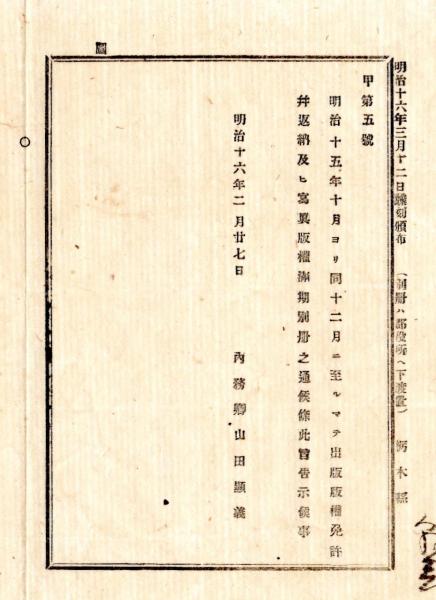 明治十六年三月十二日翻刻頒布 (別册ハ郡役所ヘ下渡置) 栃木縣
甲第五號
明治十五年十月ヨリ同十二月ニ至ルマテ出版版權免許
幷返納及ヒ寫眞版權滿期別册之通候條此旨告示候事
明治十六年二月廿七日 內務卿山田顯義